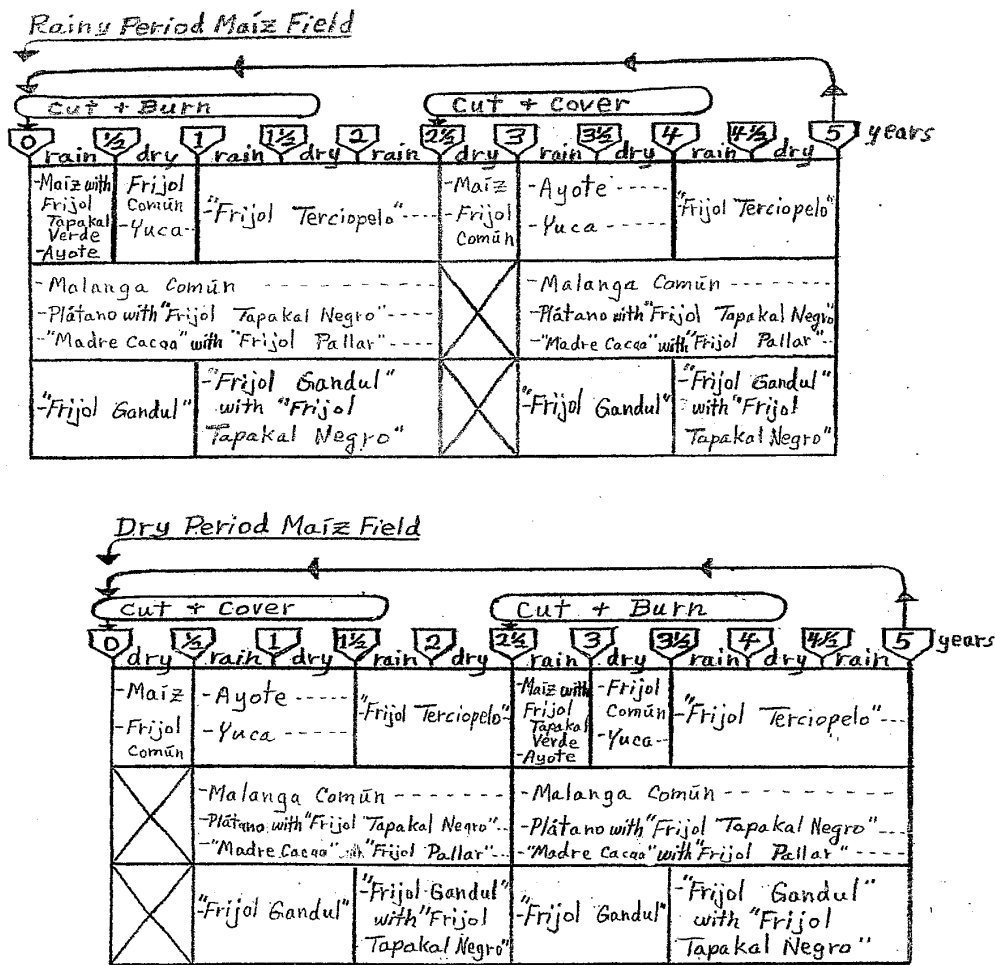 Rainy Period Maíz Field
Cut + Burn
Cut + Cover
0 ½ 1 1½ 2 2½ 3 3½ 4 4½ 5 years
rain dry rain dry rain dry rain dry rain dry
-Maíz with
Frijol
Tapakal
Verde
-Ayote
Frijol
Común
-Yuca
-"Frijol Terciopelo"
-Maíz
-Frijol
Común
-Ayote
-Yuca
"Frijol Terciopelo"
-Malanga Común
-Plátano with "Frijol Tapakal Negro"
-"Madre Cacao" with "Frijol Pallar"
-Malanga Común
-Plátano with "Frijol Tapakal Negro"
-"Madre Cacao" with "Frijol Pallar"
-"Frijol Gandul"
-"Frijol Gandul"
with "Frijol
Tapakal Negro"
-"Frijol Gandul"
-"Frijol Gandul"
with "Frijol
Tapakal Negro"
Dry Period Maíz Field
Cut + Cover
Cut + Burn
0 ½ 1 1½ 2 2½ 3 3½ 4 4½ 5 years
dry rain dry rain dry rain dry rain dry rain
-Maíz
-Frijol
Común
-Ayote
-Yuca
-"Frijol Terciopelo"
-Maíz with
Frijol
Tapakal
Verde
-Ayote
-Frijol
Común
-Yuca
-"Frijol Terciopelo"
-Malanga Común
-Plátano with "Frijol Tapakal Negro"
-"Madre Cacao" with "Frijol Pallar"
-Malanga Común
-Plátano with "Frijol Tapakal Negro"
-"Madre Cacao" with "Frijol Pallar"
-"Frijol Gandul"
-"Frijol Gandul"
with "Frijol
Tapakal Negro"
-"Frijol Gandul"
-"Frijol Gandul"
with "Frijol
Tapakal Negro"